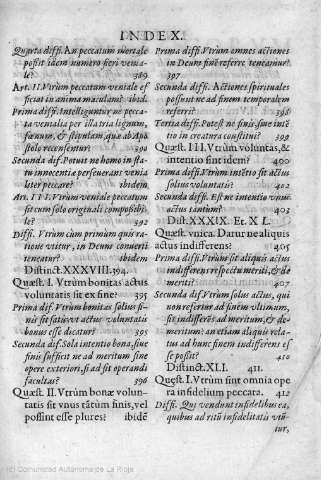 INDEX.
Quarta diffi. An peccatum mortale
possit idem numero fieri venia-
le? 389
Art. II. Vtrum peccatum veniale ef
ficiat in anima maculam? ibid.
Prima diffi. Intelligantur ne pecca-
ta venialia per illa tria lignum,
fœnum, & stipulam, quæ ab Apo
stolo recensentur? 390
Secunda dif. Potuit ne homo in sta-
tu innocentiæ perseuerans venia
liter peccare? ibidem
Ar. III. Vtrum veniale peccatum
sit cum solo originali compossibi-
le? 392
Diffi. Vtrum cum primùm quis ra-
tione vtitur, in Deum conuerti
teneatur? ibidem
Distinct. XXXVIII. 394.
Quæst. I. Vtrùm bonitas actus
voluntatis sit ex fine? 395
Prima diffi. Vtrum bonitas solius fi-
nis sit satis vt actus voluntatis
bonus esse dicatur? 395
Secunda dif. Sola intentio bona, siue
finis sufficit ne ad meritum sine
opere exteriori, si ad sit operandi
facultas? 396
Quæst. II. Vtrùm bonæ volun-
tatis sit vnus tãtùm finis, vel
possint esse plures? ibidẽ
Prima diffi. Vtrùm omnes actiones
in Deum finẽ referre teneamur?
397
Secunda diffi. Actiones spirituales
possunt ne ad finem temporalem
referri? 398
Tertia diffi. Potest ne finis, siue intẽ
tio in creatura constitui? 399
Quæst. III. Vtrùm voluntas, &
intentio sint idem? 400
Prima diffi. Vtrùm intẽtio sit actus
solius voluntatis? 402
Secunda diffi. Est ne intentio vnus
actus tantùm? 403
Dist. XXXIX. Et. XL.
Quæst. vnica. Datur ne aliquis
actus indifferens? 405
Prima diffi. Vtrùm sit aliquis actus
indifferens respectu meriti, & de-
meriti? 407
Secunda dif. Vtrùm solus actus, qui
non refertur ad finem vltimum,
sit indifferẽs ad meritum, & de-
meritum: an etiam aliquis rela-
tus ad hunc finem indifferens es
se possit? 410
Distinct. XLI. 411.
Quæst. I. Vtrùm sint omnia ope
ra infidelium peccata. 412
Diffi. Qui vendunt infidelibus ea,
quibus ad ritũ infidelitatis viũ
tur,
(c) Comunidad Autónoma de La Rioja